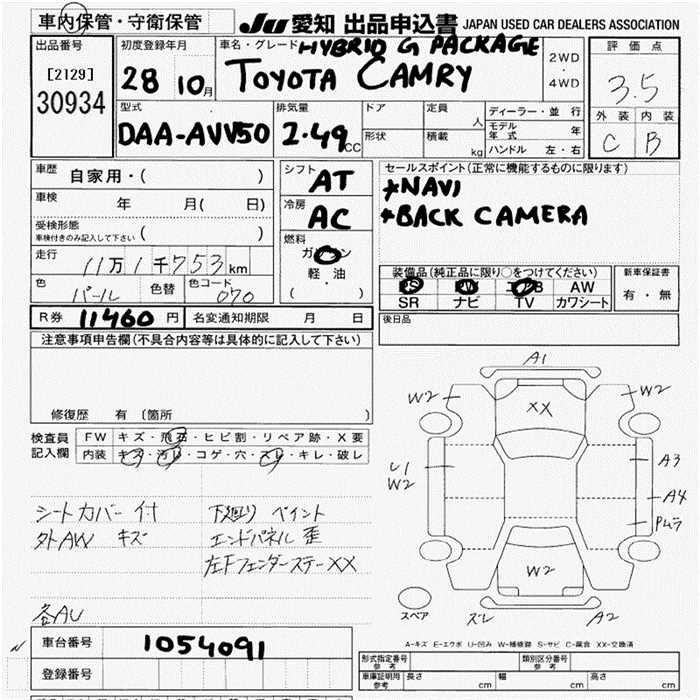 車内保管・守衛保管
JU 愛知 出品申込書 JAPAN USED CAR DEALERS ASSOCIATION
出品番号
[2129]
30934
初度登録年月
28 10月
車名・グレード
HYBRID G PACKAGE
TOYOTA CAMRY
2WD
・
4WD
評価点
3.5
外装 内装
C B
型式
DAA-AVV50
排気量
2.49cc
ドア
定員 人
形状
積載 kg
ディーラー・並行
モデル年式 年
ハンドル 左・右
車歴 自家用・( )
車検 年 月( 日)
受検形態
車検付きのみ記入して下さい ( )
走行 11万1千753km
色 パール 色替 色コード 070
シフト AT
冷房 AC
燃料
ガソリン
軽・油
( )
セールスポイント(正常に機能するものに限ります)
*NAVI
*BACK CAMERA
装備品(純正品に限り○をつけてください)
PS PW エアB AW
SR ナビ TV カワシート
新車保証書
有・無
R券 11460 円 名変通知期限 月 日
後日品
注意事項申告欄(不具合内容等は具体的に記入して下さい)
修復歴 有 [箇所 ]
検査員記入欄
FW キズ・飛石・ヒビ割・リペア跡・X要
内装 キズ・汚レ・コゲ・穴・スレ・キレ・破レ
シートカバー付
外AW キズ
下廻り ペイント
エンドパネル 歪
左Fフェンダーステー XX
各AU
A1
W2 W2
XX
U1
W2
A3
A4
Pムラ
W2
スペア
ズレ A2
A-キズ E-エクボ U-凹み W-補修跡 S-サビ C-腐食 XX-交換済
車台番号 1054091
登録番号
形式指定番号
参考
類別区分番号
参考
車庫証明用
参考
長さ cm 幅 cm 高さ cm